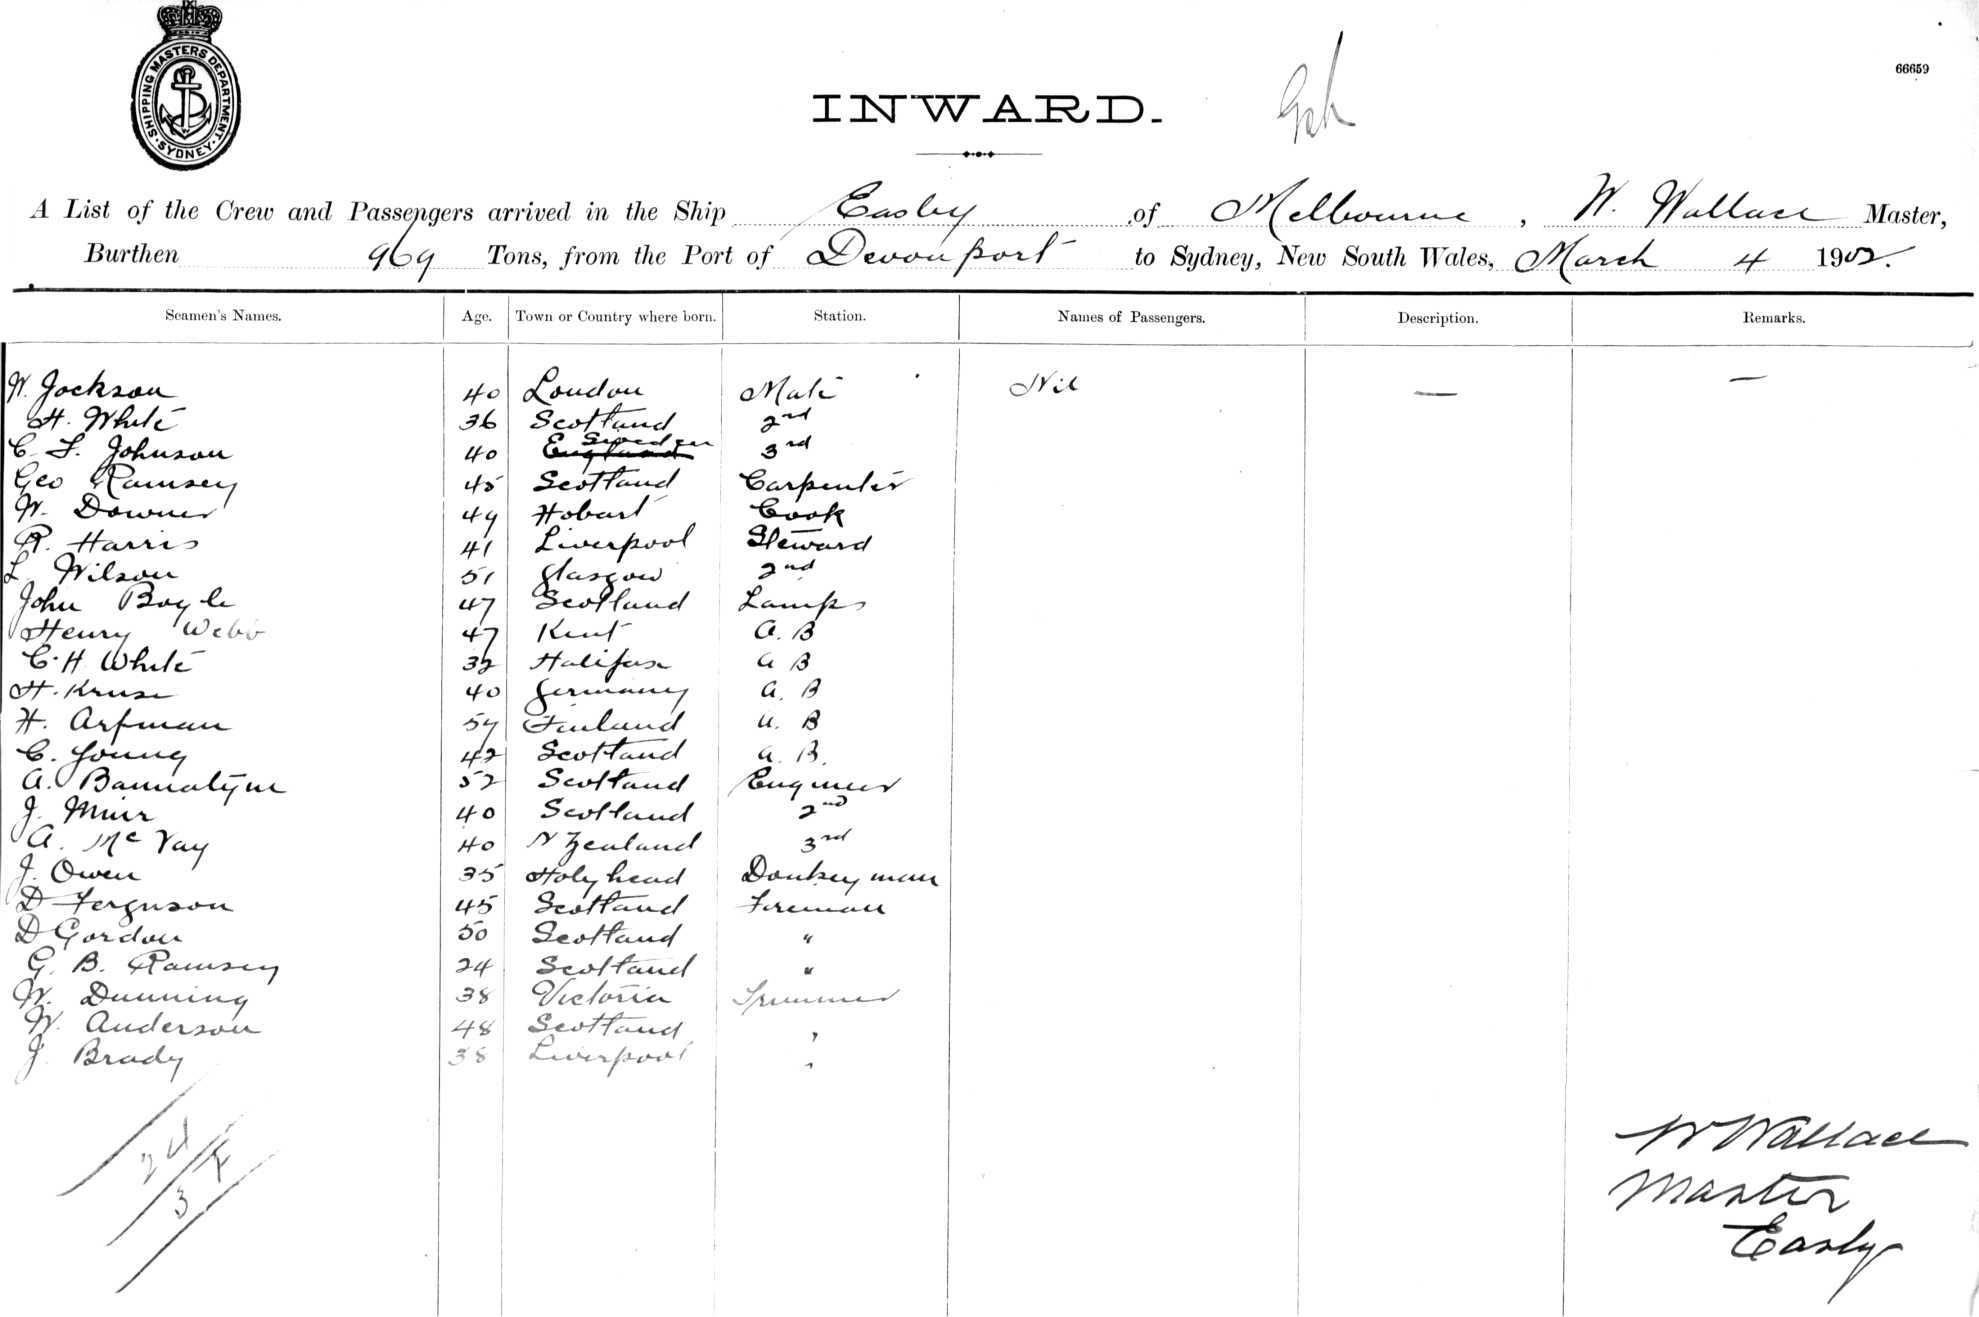 SHIPPING MASTERS DEPARTMENT
SYDNEY
66659
INWARD.
A List of the Crew and Passengers arrived in the Ship Easby of Melbourne, W. Wallace Master,
Burthen 969 Tons, from the Port of Devonport to Sydney, New South Wales, March 4 1902.
Seamen's Names. Age. Town or Country where born. Station. Names of Passengers. Description. Remarks.
W. Jackson 40 London Mate Nil — —
H. White 36 Scotland 2nd
C. F. Johnson 40 England Sweden 3rd
Geo Ramsey 45 Scotland Carpenter
W. Downer 49 Hobart Cook
R. Harris 41 Liverpool Steward
L Wilson 51 Glasgow 2nd
John Boyle 47 Scotland Lamps
Henry Webb 47 Kent A. B
C. H. White 32 Halifax A B
H. Kruse 40 Germany A. B
H. Arfman 54 Finland A. B
C. Young 42 Scotland A. B.
A. Bannatyne 52 Scotland Engineer
J. Muir 40 Scotland 2nd
A. McVay 40 N Zealand 3rd
J. Owen 35 Holyhead Donkeyman
D Ferguson 45 Scotland Fireman
D Gordon 50 Scotland "
G. B. Ramsey 24 Scotland "
W. Dunning 38 Victoria Trimmer
W. Anderson 48 Scotland "
J. Brady 38 Liverpool "
24
3
W Wallace
Master
Easby